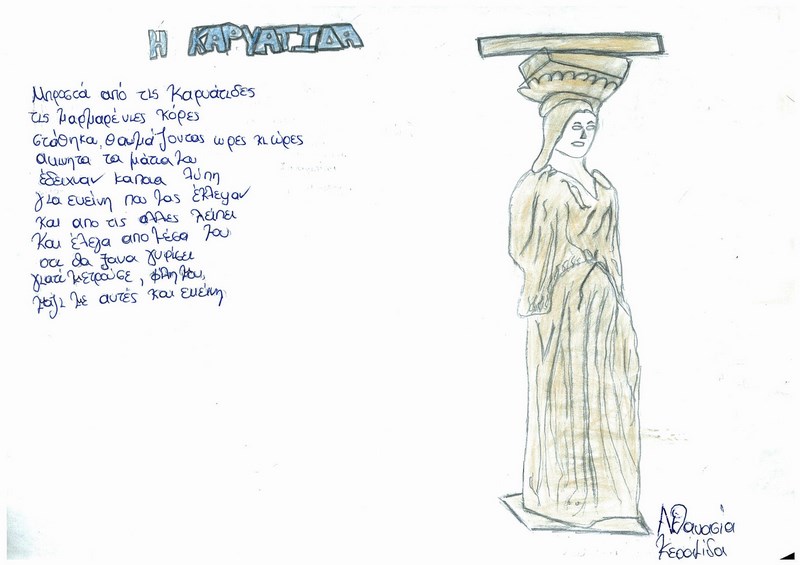 Η ΚΑΡΥΑΤΙΔΑ
Μπροστά από τις Καρυάτιδες
τις μαρμαρένιες κόρες
στάθηκα, θαυμάζοντας ωρες κι ώρες
ακινητα τα μάτια του
έδειχναν καποια λύπη
για εκείνη που μας έκλεψαν
και απο τις αλλες λείπει
Και έλεγα απο μέσα μου
οτι θα ξανα γυρίσει
γιατί μετρούσε, φίλη μου,
μαζι με αυτές και εκείνη
Αθανασία
Κεραμίδα